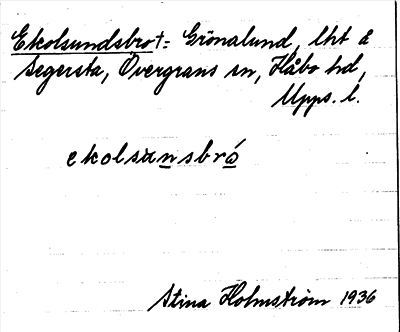 Ekolsundsbrot = Grönalund, lht å
Segersta, Övergrans sn, Håbo hd,
Upps. l.
ekolsunsbró
Stina Holmström 1936